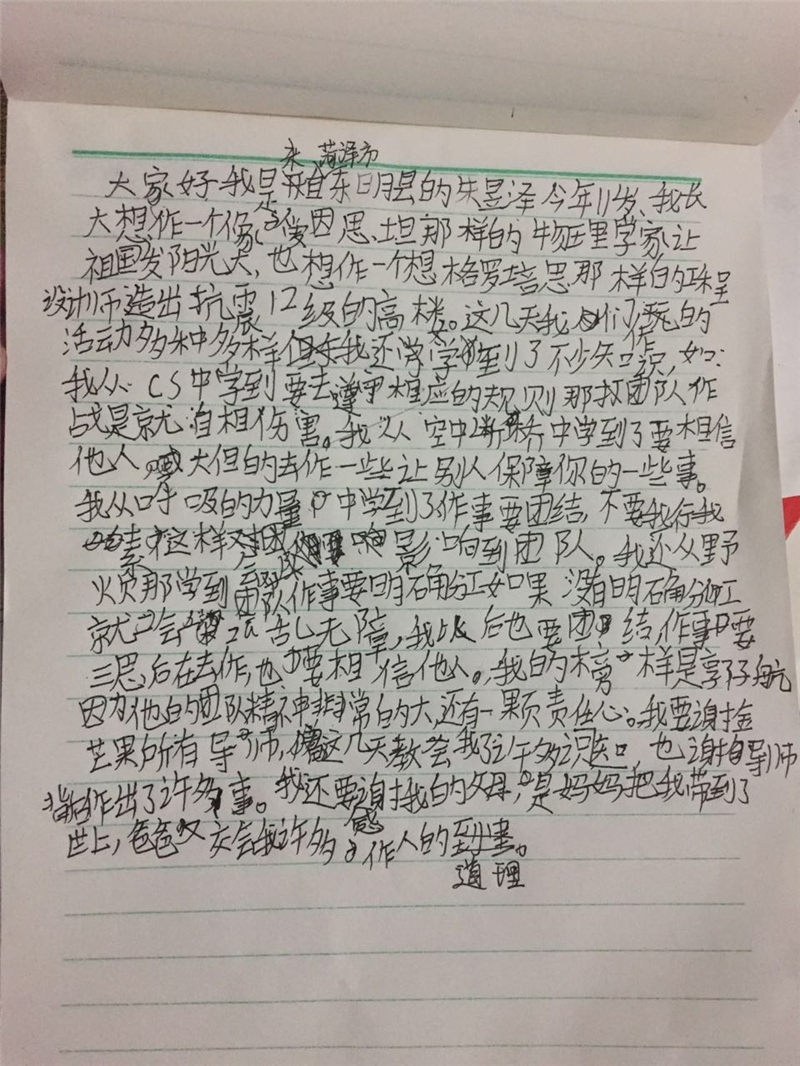 来菏泽市
大家好我是来自东明县的朱昱泽今年11岁、我长
大想作一个像爱因思坦那样的物理学家让
祖国发阳光大,也想作一个想格罗培思那样的
设计师造出抗震12级的高楼。这几天我们玩的
活动多种多样但我还学到了不少知识,如:
我从CS中学到要去遵守相应的规则那打团队作
战是就自相伤害。我从空中断桥中学到了要相信
他人,大但的去作一些让别人保障你的一些事。
我从呼吸的力量中学到了作事要团结,不要我行我
素这样会影响到团队。我还从野
炊那学到团队作事要明确分工如果没有明确分工
就会混乱无障,我以后也要团结作事要
三思后在去作,也要相信他人。我的榜样是郭子航
因为他的团队精神非常的大,还有一颗责任心。我要谢
芒果所有导师,这几天教会我了许多识,也谢导师
作出了许多事。我还要谢我的父母,是妈妈把我带到了
世上,爸爸又交会我许多作人的
道理